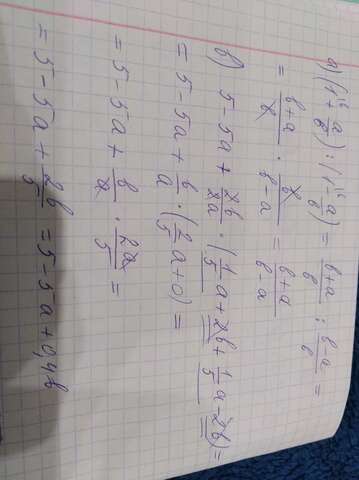 а) (1 + a/b) : (1 - a/b) = (b+a)/b : (b-a)/b =
= (b+a)/b · b/(b-a) = (b+a)/(b-a)
б) 5 - 5a + 2b/2a · (1/5 a + 2b + 1/5 a - 2b) =
= 5 - 5a + b/a · (2/5 a + 0) =
= 5 - 5a + b/a · 2a/5 =
= 5 - 5a + 2b/5 = 5 - 5a + 0,4b